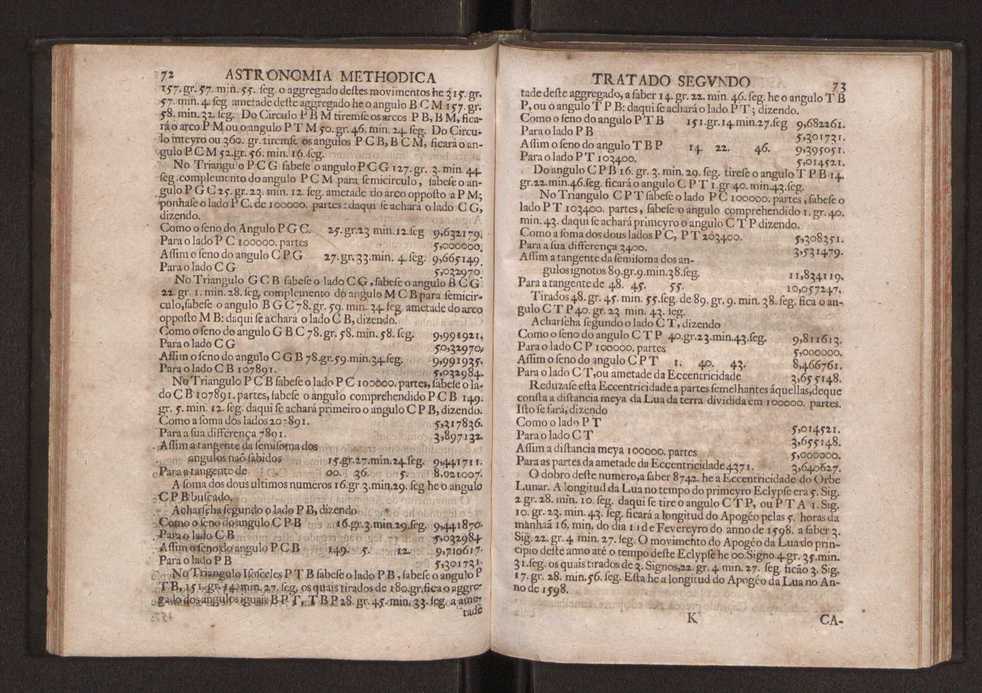 72 ASTRONOMIA METHODICA
157. gr. 57. min. 55. seg. o aggregado destes movimentos he 315. gr.
57. min. 4. seg ametade deste aggregado he o angulo B C M 157. gr.
58. min. 32. seg. Do Circulo P B M tiremse os arcos P B, B M, fica-
rá o arco P M ou o angulo P T M 50. gr. 46. min. 24. seg. Do Circu-
lo inteyro ou 360. gr. tiremse os angulos P C B, B C M, ficará o an-
gulo P C M 52. gr. 56. min. 16. seg.
No Triangulo P C G sabese o angulo P C G 127. gr. 3. min. 44
seg. complemento do angulo P C M para semicirculo, sabese o an-
gulo P G C 25. gr. 23. min. 12. seg. ametade do arco opposto a P M;
ponhase o lado P C. de 100000. partes: daqui se achará o lado C G,
dizendo.
Como o seno do Angulo P G C. 25. gr.23 min.12.seg 9,632179.
Para o lado P C 100000. partes 5,000000.
Assim o seno do angulo C P G 27. gr. 33. min. 4. seg. 9,665149
Para o lado C G 5,032970
No Triangulo G C B sabese o lado C G, sabese o angulo B C G
22. gr. 1. min. 28. seg. complemento do angulo M C B para semicir-
culo, sabese o angulo B G C 78. gr. 59. min. 34. seg. ametade do arco
opposto M B: daqui se achará o lado C B, dizendo.
Como o seno do angulo G B C 78. gr. 58. min. 58. seg. 9,991921.
Para o lado C G 50,32970.
Assim o seno do angulo C G B 78.gr.59.min.34.seg. 9,991935.
Para o lado C B 107891. 5,032984.
No Triangulo P C B sabese o lado P C 100000. partes, sabese o la-
do C B 107891. partes, sabese o angulo comprehendido P C B 149.
gr. 5. min. 12. seg. daqui se achará primeiro o angulo C P B, dizendo.
Como a soma dos lados 207891. 5,317836.
Para a sua differença 7891. 3,897132.
Assim a tangente da semisoma dos
angulos naõ sabidos 15.gr.27.min.24.seg. 9,441711.
Para a tangente de 00. 36. 5. 8.021007.
A soma dos dous ultimos numeros 16.gr 3.min.29. seg he o angulo
C P B buscado.
Acharseha segundo o lado P B, dizendo
Como o seno do angulo C P B 16.gr.3.min 29.seg. 9,441870.
Para o lado C B 5,032984
Assim o seno do angulo P C B 149. 5. 12. 9,710617.
Para o lado P B 5,301731.
No Triangulo Isosceles P T B sabese o lado P B, sabese o angulo P
T B, 151. gr. 14. min. 27. seg. os quais tirados de 180.gr.fica o aggre-
gado dos angulos iguais B P T, T B P 28. gr. 45. min. 33. seg. a ame-
tade
TRATADO SEGVNDO 73
tade deste aggregado, a saber 14. gr. 22. min. 46. seg. he o angulo T B
P, ou o angulo T P B: daqui se achará o lado P T; dizendo.
Como o seno do angulo P T B 151.gr.14.min.27.seg 9,682261.
Para o lado P B 5,301731.
Assim o seno do angulo T B P 14. 22. 46. 9,395051.
Para o lado P T 103400. 5,014521.
Do angulo C P B 16. gr. 3. min. 29. seg. tirese o angulo T P B 14.
gr.22.min.46.seg. ficará o angulo C P T 1. gr 40. min.43.seg.
No Triangulo C P T sabese o lado P C 100000. partes, sabese o
lado P T 103400. partes, sabese o angulo comprehendido 1. gr. 40.
min. 43. daqui se achará primeyro o angulo C T P dizendo.
Como a soma dos dous lados P C, P T 203400. 5,308351.
Para a sua differença 3400. 3,531479.
Assim a tangente da semisoma dos an-
gulos ignotos 89.gr.9.min.38.seg. 11,834119.
Para a tangente de 48. 45. 55. 10,057247.
Tirados 48. gr. 45. min. 55.seg. de 89. gr. 9. min. 38. seg. fica o an-
gulo C T P 40. gr. 23 min. 43. seg.
Acharseha segundo o lado C T, dizendo
Como o seno do angulo C T P 40.gr.23.min.43.seg. 9,811613.
Para o lado C P 100000. partes 5,000000.
Assim o seno do angulo C P T 1. 40. 43. 8,466761.
Para o lado C T, ou ametade da Eccentricidade 3,655148.
Reduzase esta Eccentricidade a partes semelhantes áquellas, deque
consta a distancia meya da Lua da terra dividida em 100000. partes.
Isto se fará, dizendo
Como o lado P T 5,014521.
Para o lado C T 3,655148.
Assim a distancia meya 100000. partes 5,000000.
Para as partes da ametade da Eccentricidade 4371. 3,640627.
O dobro deste numero, a saber 8742. he a Eccentricidade do Orbe
Lunar. A longitud da Lua no tempo do primeyro Eclypse era 5. Sig.
2 gr. 28. min. 10. seg. daqui se tire o angulo C T P, ou P T A 1. Sig.
10. gr. 23. min. 43. seg. ficará a longitud do Apogéo pelas 5. horas da
manhãa 16. min. do dia 11 de Fevereyro do anno de 1598. a saber 3.
Sig. 22. gr. 4 min. 27. seg. O movimento do Apogéo da Lua do prin-
cipio deste anno até o tempo deste Eclypse he 00.Signo 4.gr. 35.min.
31.seg. os quais tirados de 3. Signos, 22. gr. 4 min. 27. seg. ficão 3. Sig.
17. gr. 28. min. 56. seg. Esta he a longitud do Apogéo da Lua no An-
no de 1598.
K CA-